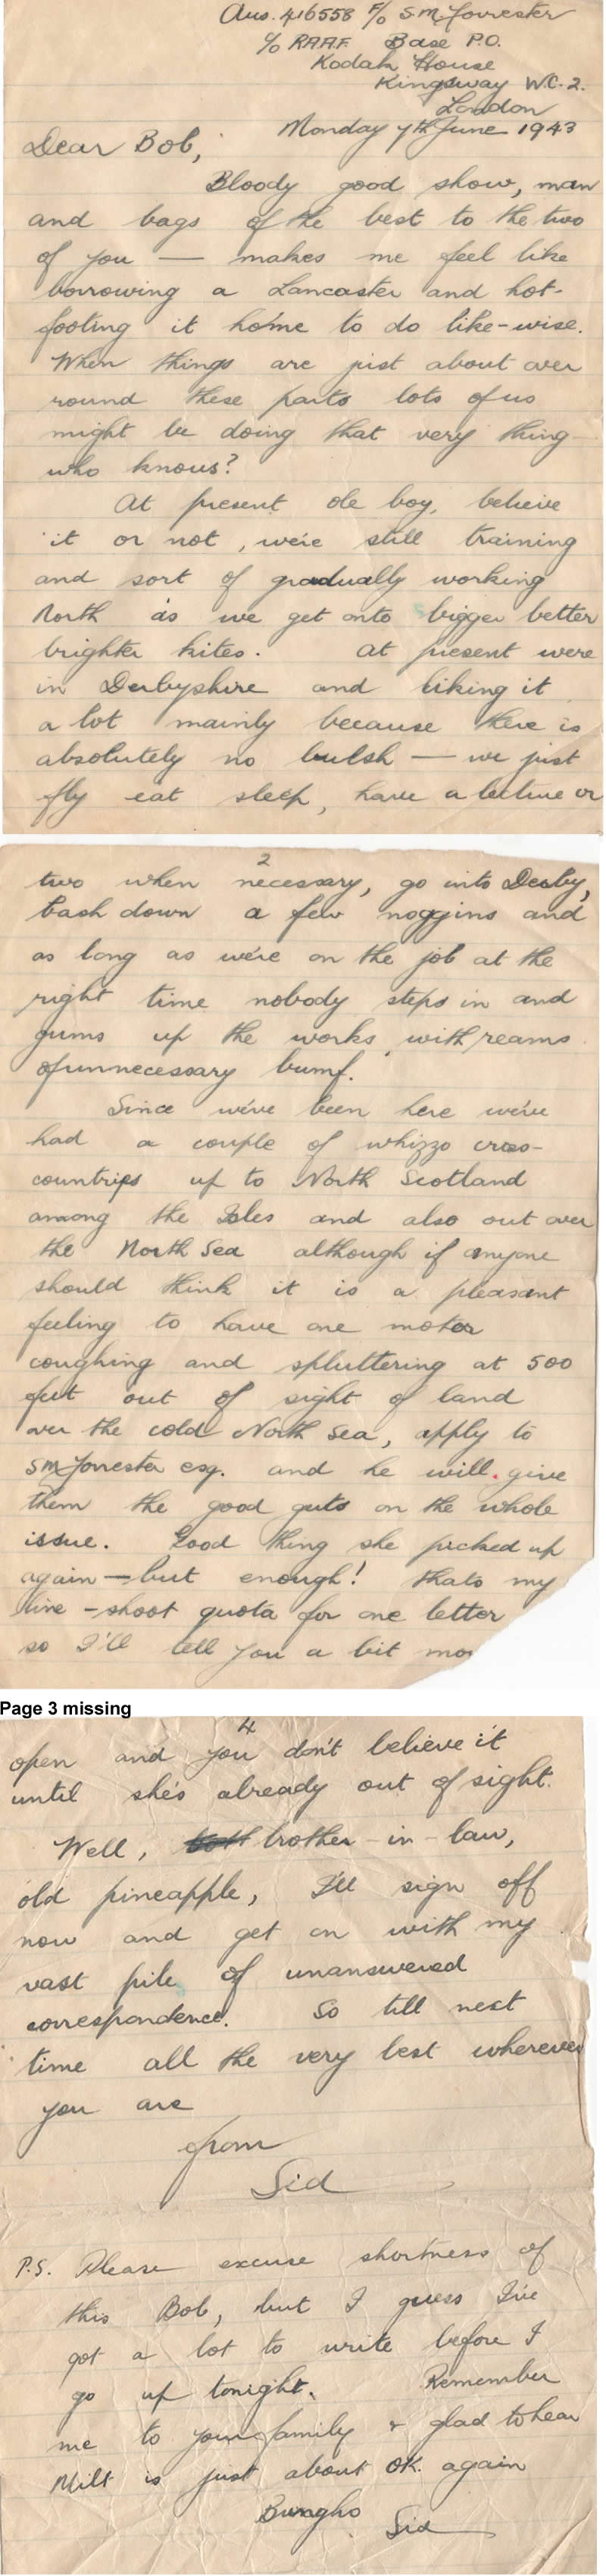 Aus. 416558 F/O S.M. Forrester
C/o RAAF Base P.O.
Kodak House
Kingsway W.C.2.
London
Monday 7th June 1943
Dear Bob,
Bloody good show, man
and bags of the best to the two
of you — makes me feel like
borrowing a Lancaster and hot-
footing it home to do like-wise.
When things are just about over
round these parts lots of us
might be doing that very thing
who knows?
At present ole boy, believe
it or not, we're still training
and sort of gradually working
North as we get onto bigger better
brighter kites. At present were
in Derbyshire and liking it
a lot mainly because there is
absolutely no bulsh — we just
fly eat sleep, have a lecture or
2
two when necessary, go into Derby,
bash down a few noggins and
as long as we're on the job at the
right time nobody steps in and
gums up the works with reams
of unnecessary bumf.
Since we've been here we've
had a couple of whizzo cross-
countrips up to North Scotland
among the Isles and also out over
the North Sea although if anyone
should think it is a pleasant
feeling to have one motor
coughing and spluttering at 500
feet out of sight of land
over the cold North Sea, apply to
SM Forrester esq. and he will give
them the good guts on the whole
issue. Good thing she picked up
again — but enough! thats my
line-shoot quota for one letter
so I'll tell you a bit
Page 3 missing
4
open and you don't believe it
until she's already out of sight.
Well, brother-in-law,
old pineapple, I'll sign off
now and get on with my
vast pile of unanswered
correspondence. So till next
time all the very best wherever
you are
from
Sid
P.S. Please excuse shortness of
this Bob, but I guess I've
got a lot to write before I
go up tonight. Remember
me to your family & glad to hear
Milt is just about OK again
Bungho
Sid